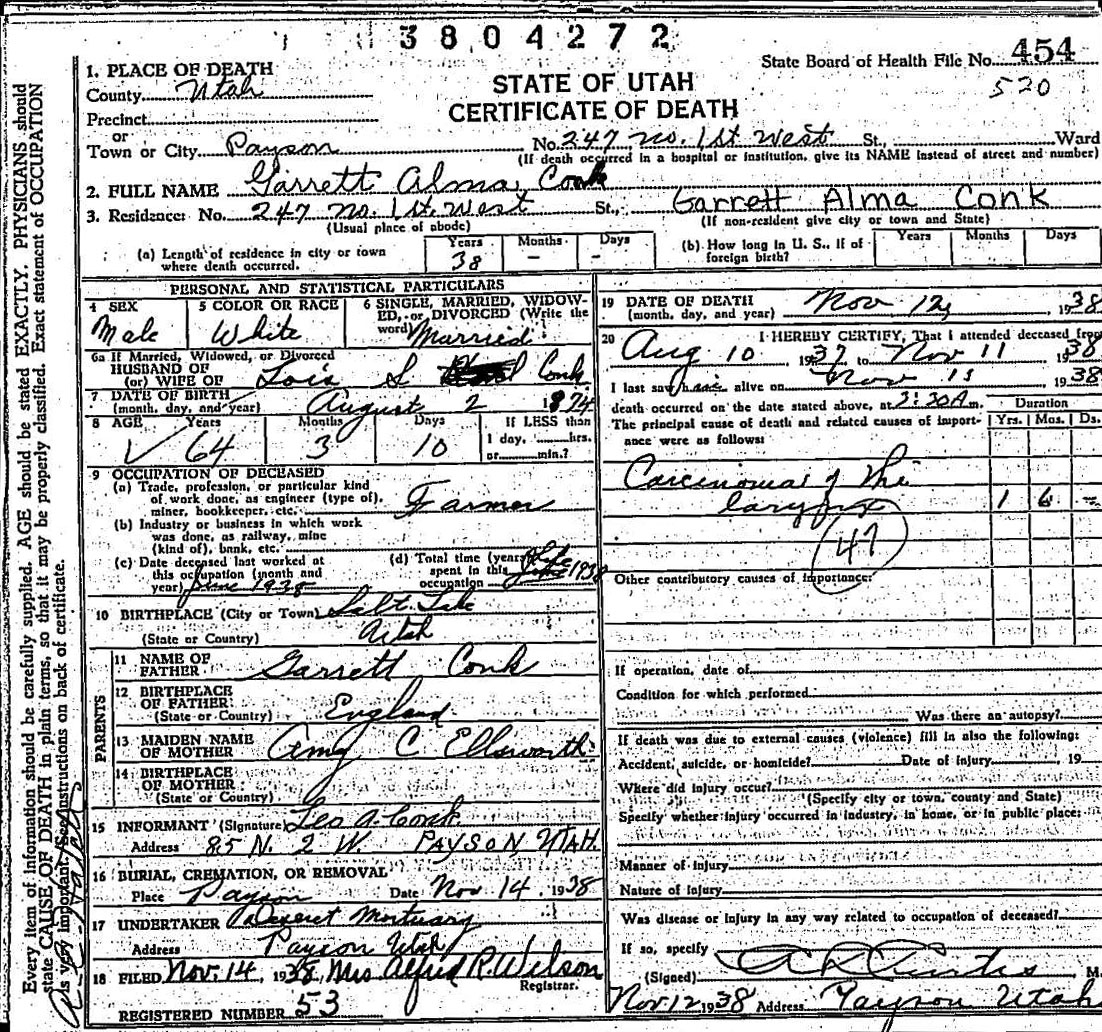 3804272
State Board of Health File No. 454
520
1. PLACE OF DEATH
County Utah
Precinct
or
Town or City Payson
STATE OF UTAH
CERTIFICATE OF DEATH
No. 247 no. 1st West St., Ward
(If death occurred in a hospital or institution, give its NAME instead of street and number)
2. FULL NAME Garrett Alma Conk
3. Residence: No. 247 no. 1st. West St., Garrett Alma Conk
(Usual place of abode) (If non-resident give city or town and State)
(a) Length of residence in city or town where death occurred. Years 38 Months - Days -
(b) How long in U. S., if of foreign birth? Years Months Days
PERSONAL AND STATISTICAL PARTICULARS
4 SEX Male
5 COLOR OR RACE White
6 SINGLE, MARRIED, WIDOWED, or DIVORCED (Write the word) Married
6a If Married, Widowed, or Divorced
HUSBAND OF
(or) WIFE OF Lois S Conk
7 DATE OF BIRTH
(month, day, and year) August 2 1874
8 AGE Years 64 Months 3 Days 10 If LESS than
1 day, hrs.
or min.?
9 OCCUPATION OF DECEASED
(a) Trade, profession, or particular kind
of work done, as engineer (type of),
miner, bookkeeper, etc. Farmer
(b) Industry or business in which work
was done, as railway, mine
(kind of), bank, etc.
(c) Date deceased last worked at
this occupation (month and
year) June 1938
(d) Total time (years)
spent in this
occupation Life
10 BIRTHPLACE (City or Town) Salt Lake
(State or Country) Utah
PARENTS
11 NAME OF
FATHER Garrett Conk
12 BIRTHPLACE
OF FATHER
(State or Country) England
13 MAIDEN NAME
OF MOTHER Amy C Ellsworth
14 BIRTHPLACE
OF MOTHER
(State or Country)
15 INFORMANT (Signature) Leo A. Conk
Address 85 N. 2 W. PAYSON, UTAH.
16 BURIAL, CREMATION, OR REMOVAL
Place Payson Date Nov. 14, 1938
17 UNDERTAKER Deseret Mortuary
Address Payson Utah
18 FILED Nov. 14, 1938, Mrs Alfred R. Wilson
Registrar.
REGISTERED NUMBER 53
19 DATE OF DEATH
(month, day, and year) Nov 12, 1938
20 I HEREBY CERTIFY, That I attended deceased from
Aug 10 1937 to Nov 11 1938
I last saw him alive on Nov 11 1938
death occurred on the date stated above, at 3:30 A m.
The principal cause of death and related causes of importance were as follows:
Duration
Yrs. Mos. Ds.
Carcinoma of the
larynx 1 6 -
47
Other contributory causes of importance:
If operation, date of
Condition for which performed
Was there an autopsy?
If death was due to external causes (violence) fill in also the following:
Accident, suicide, or homicide? Date of injury , 19
Where did injury occur?
(Specify city or town, county and State)
Specify whether injury occurred in industry, in home, or in public place:
Manner of injury
Nature of injury
Was disease or injury in any way related to occupation of deceased?
If so, specify
(Signed) A R Curtis M.
Nov 12 1938 Address Payson Utah
Every item of information should be carefully supplied. AGE should be stated EXACTLY. PHYSICIANS should
state CAUSE OF DEATH in plain terms, so that it may be properly classified. Exact statement of OCCUPATION
is very important. See instructions on back of certificate.